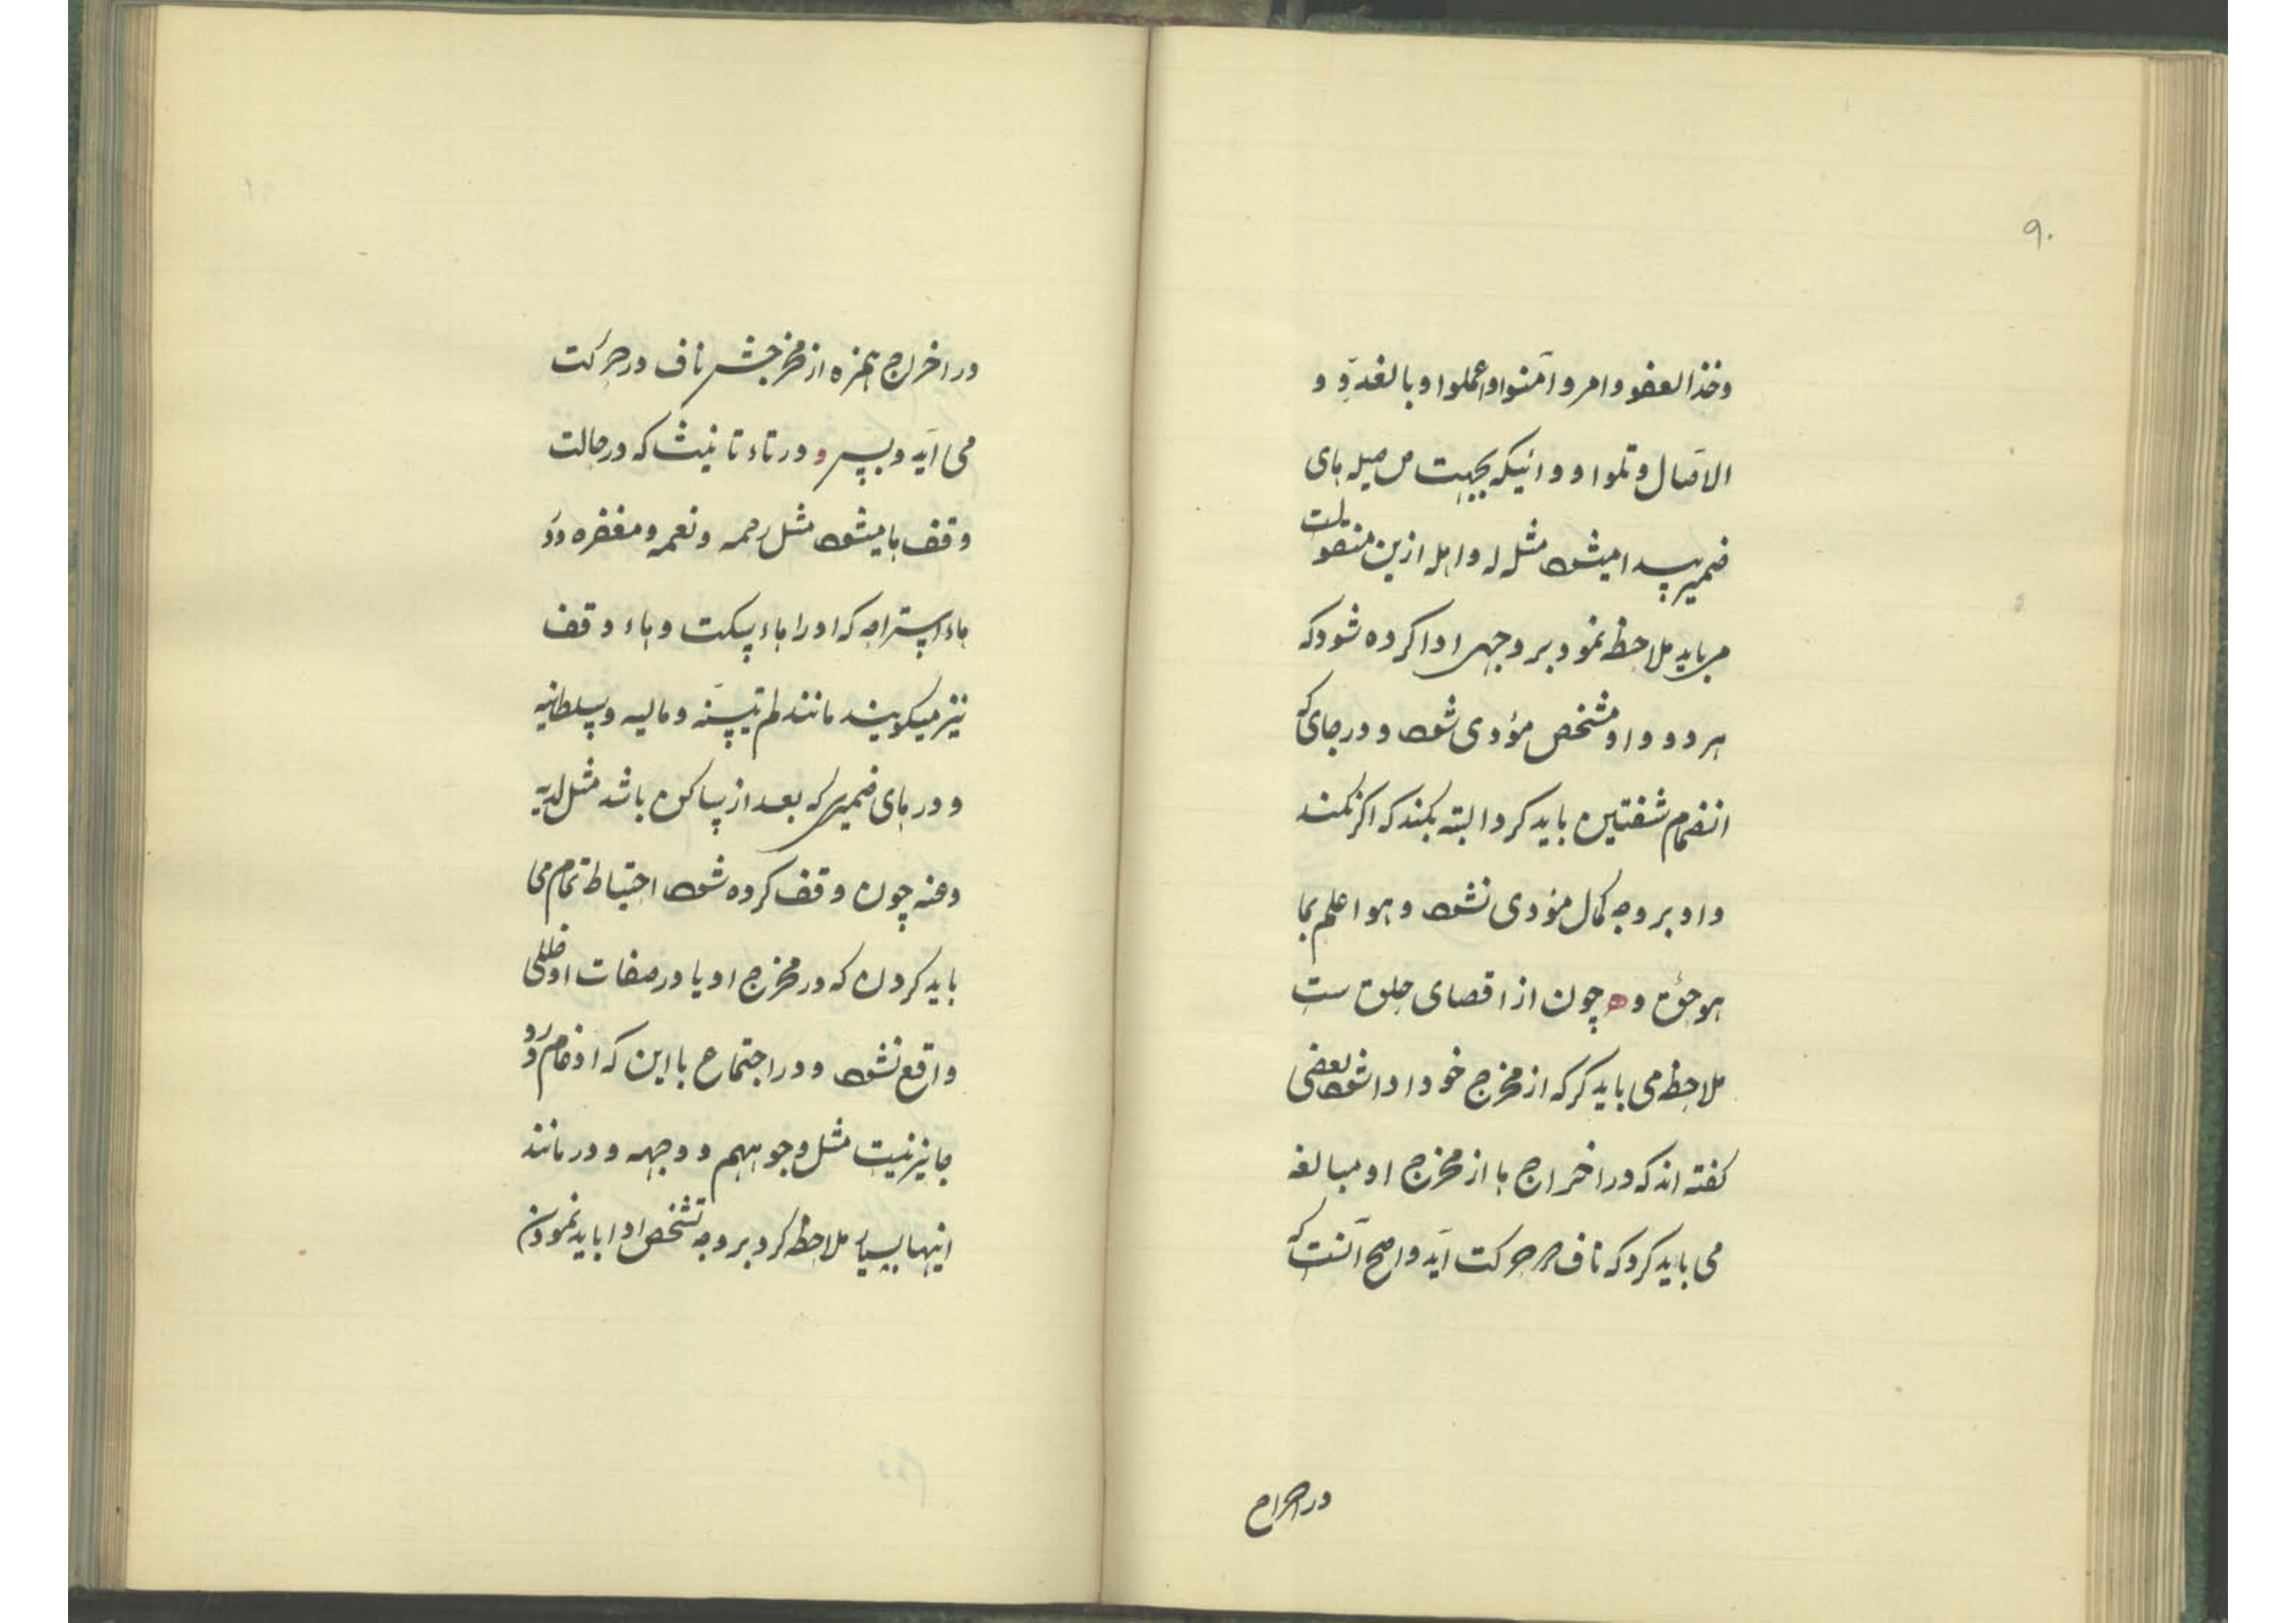 ۹۰
وخذ العفو وامر و آمنوا وعملوا و بالغدوّ و
الاصال و تلوا و و انیکه بجهت صله های
ضمیر پیدا میشود مثل له و اهله ازین منقولت
می باید ملاحظه نمود بر وجهی ادا کرده شود که
هر دو واو مشخص مؤدی شود و در جای که
انضمام شفتین باید کرد البته بکند که اکر نکند
واو بر وجه کمال مؤدی نشود و هو اعلم بما
هو حق و ه چون از اقصای حلق ست
ملاحظه می باید کرکه از مخرج خود ادا شود بعضی
کفته اند که در اخراج ها از مخرج او مبالغه
می باید کرد که ناف در حرکت آید و اصح آنست که
در اخراج
در اخراج همزه از مخرجش ناف در حرکت
می آید و بس و در تاء تانیث که در حالت
وقف ها میشود مثل رحمه و نعمه و مغفره و در
هاء استراحه که او را هاء سکت و هاء وقف
نیز میکویند مانند لم یتسنّه و مالیه و سلطانیه
و در های ضمیری که بعد از ساکن باشد مثل لدیه
و عنه چون وقف کرده شود احتیاط تمام می
باید کردن که در مخرج او یا در صفات او خللی
واقع نشود و در اجتماع با این که ادغام در و
جایز نیست مثل وجوههم و وجهه و در مانند
اینها بسیار ملاحظه کرد بر وجه تشخص ادا باید نمودن